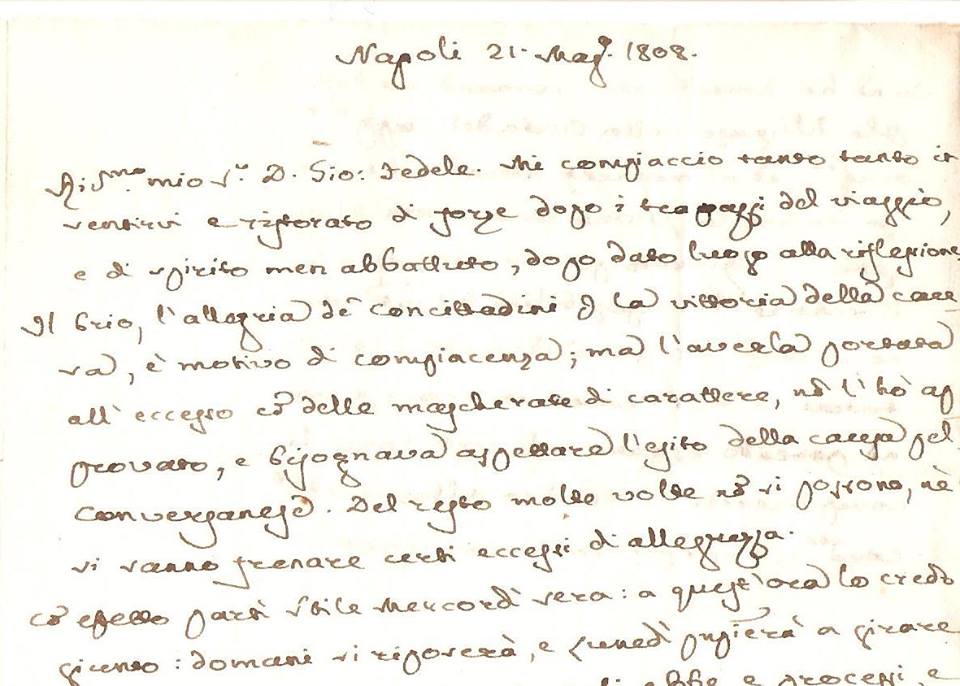 Napoli 21. Mag. 1808.
mio Sr. D. Gio: Fedele. Mi compiaccio tanto tanto in
sentirvi e ristorato di forze dopo i strapazzi del viaggio,
e di spirito men abbattuto, dopo dato luogo alla riflessione
Il brio, l'allegria de' Concittadini la vittoria della cau
sa, è motivo di compiacenza; ma l'averla portata
all'eccesso cõ delle mascherate di carattere, nõ l'hò ap
provato, e bisognava aspettare l'esito della causa pel
Conversanese. Del resto molte volte nõ si possono, nè
si sanno frenare certi eccessi di allegrezza.
cõ effetto partì Stile Mercordì sera: a quest'ora lo credo
giunto: domani si riposerà, e Lunedì a girare
e processi, e